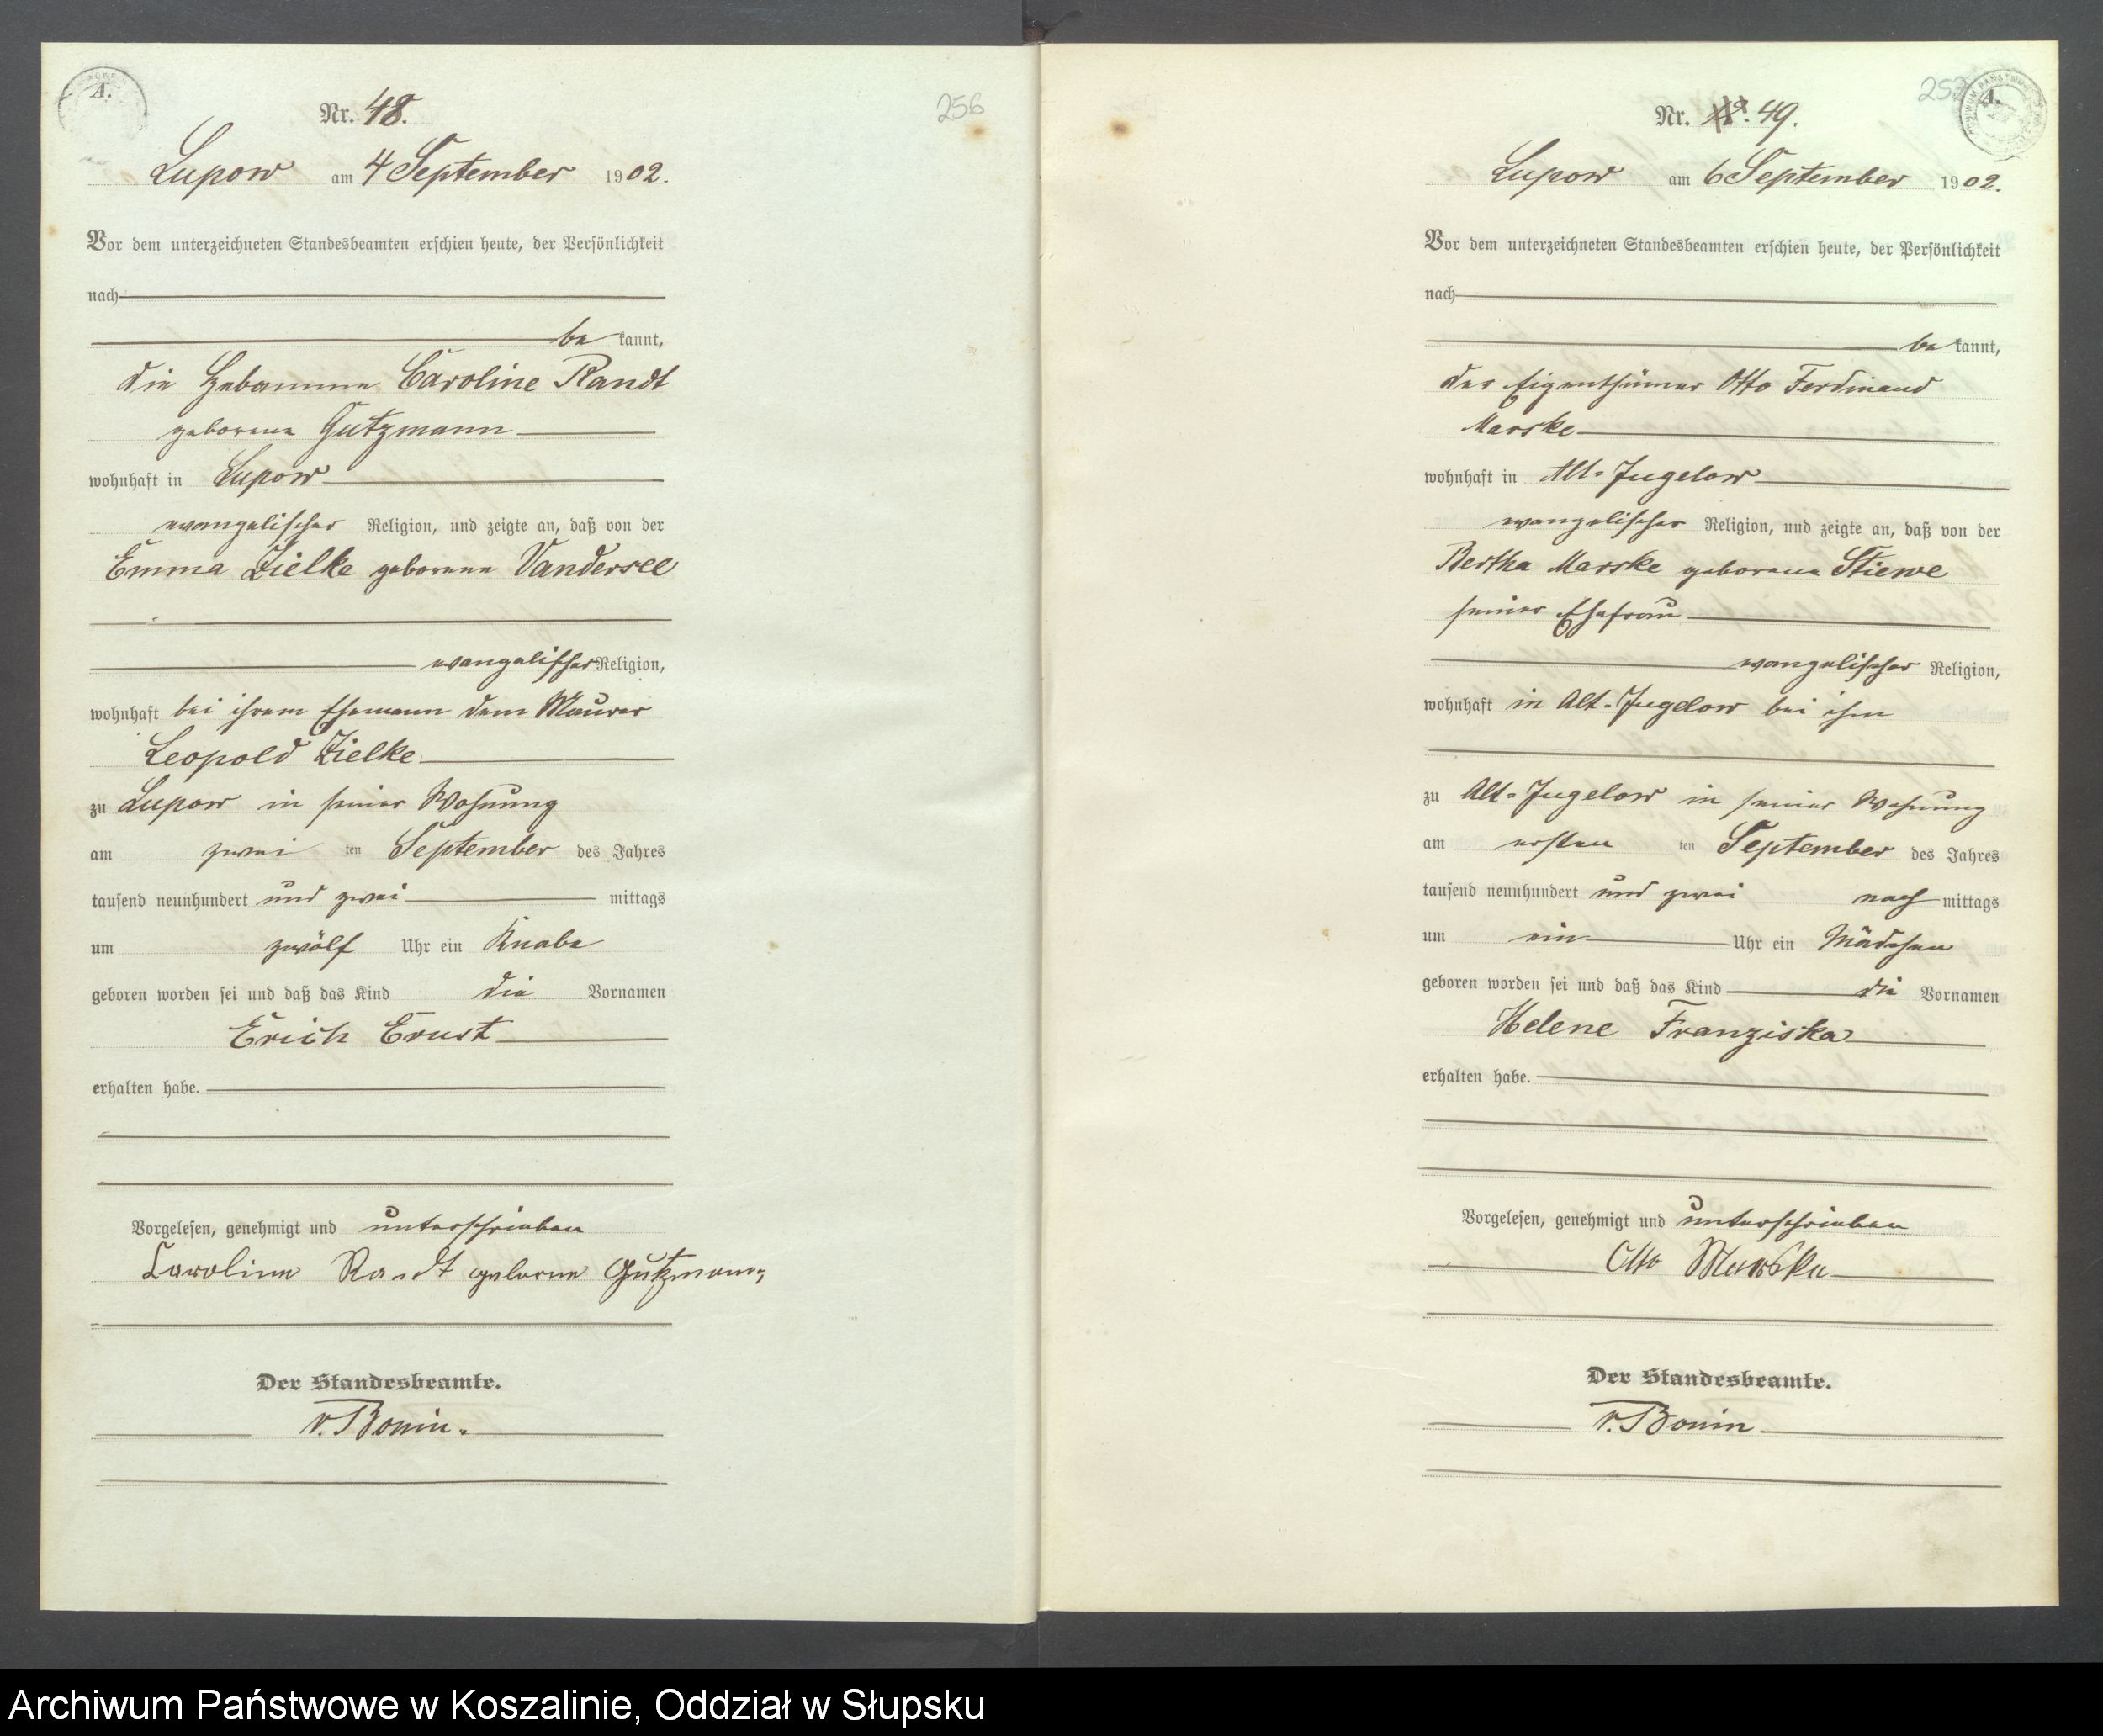 A.
256
Nr. 48.
Lupow am 4 September 1902.
Vor dem unterzeichneten Standesbeamten erschien heute, der Persönlichkeit
nach
be kannt,
die Hebamme Caroline Randt
geborene Gutzmann
wohnhaft in Lupow
evangelischer Religion, und zeigte an, daß von der
Emma Zielke geborene Vandersee
evangelischer Religion,
wohnhaft bei ihrem Ehemann dem Maurer
Leopold Zielke
zu Lupow in seiner Wohnung
am zwei ten September des Jahres
tausend neunhundert und zwei mittags
um zwölf Uhr ein Knabe
geboren worden sei und daß das Kind die Vornamen
Erich Ernst
erhalten habe.
Vorgelesen, genehmigt und unterschrieben
Caroline Randt geborne Gutzmann
Der Standesbeamte.
v. Bonin.
257
A.
Nr. 49.
Lupow am 6 September 1902.
Vor dem unterzeichneten Standesbeamten erschien heute, der Persönlichkeit
nach
be kannt,
der Eigenthümer Otto Ferdinand
Marske
wohnhaft in Alt-Jugelow
evangelischer Religion, und zeigte an, daß von der
Bertha Marske geborene Stiewe
seiner Ehefrau
evangelischer Religion,
wohnhaft in Alt-Jugelow bei ihm
zu Alt-Jugelow in seiner Wohnung
am ersten ten September des Jahres
tausend neunhundert und zwei nach mittags
um ein Uhr ein Mädchen
geboren worden sei und daß das Kind die Vornamen
Helene Franziska
erhalten habe.
Vorgelesen, genehmigt und unterschrieben
Otto Marske
Der Standesbeamte.
v. Bonin
Archiwum Państwowe w Koszalinie, Oddział w Słupsku